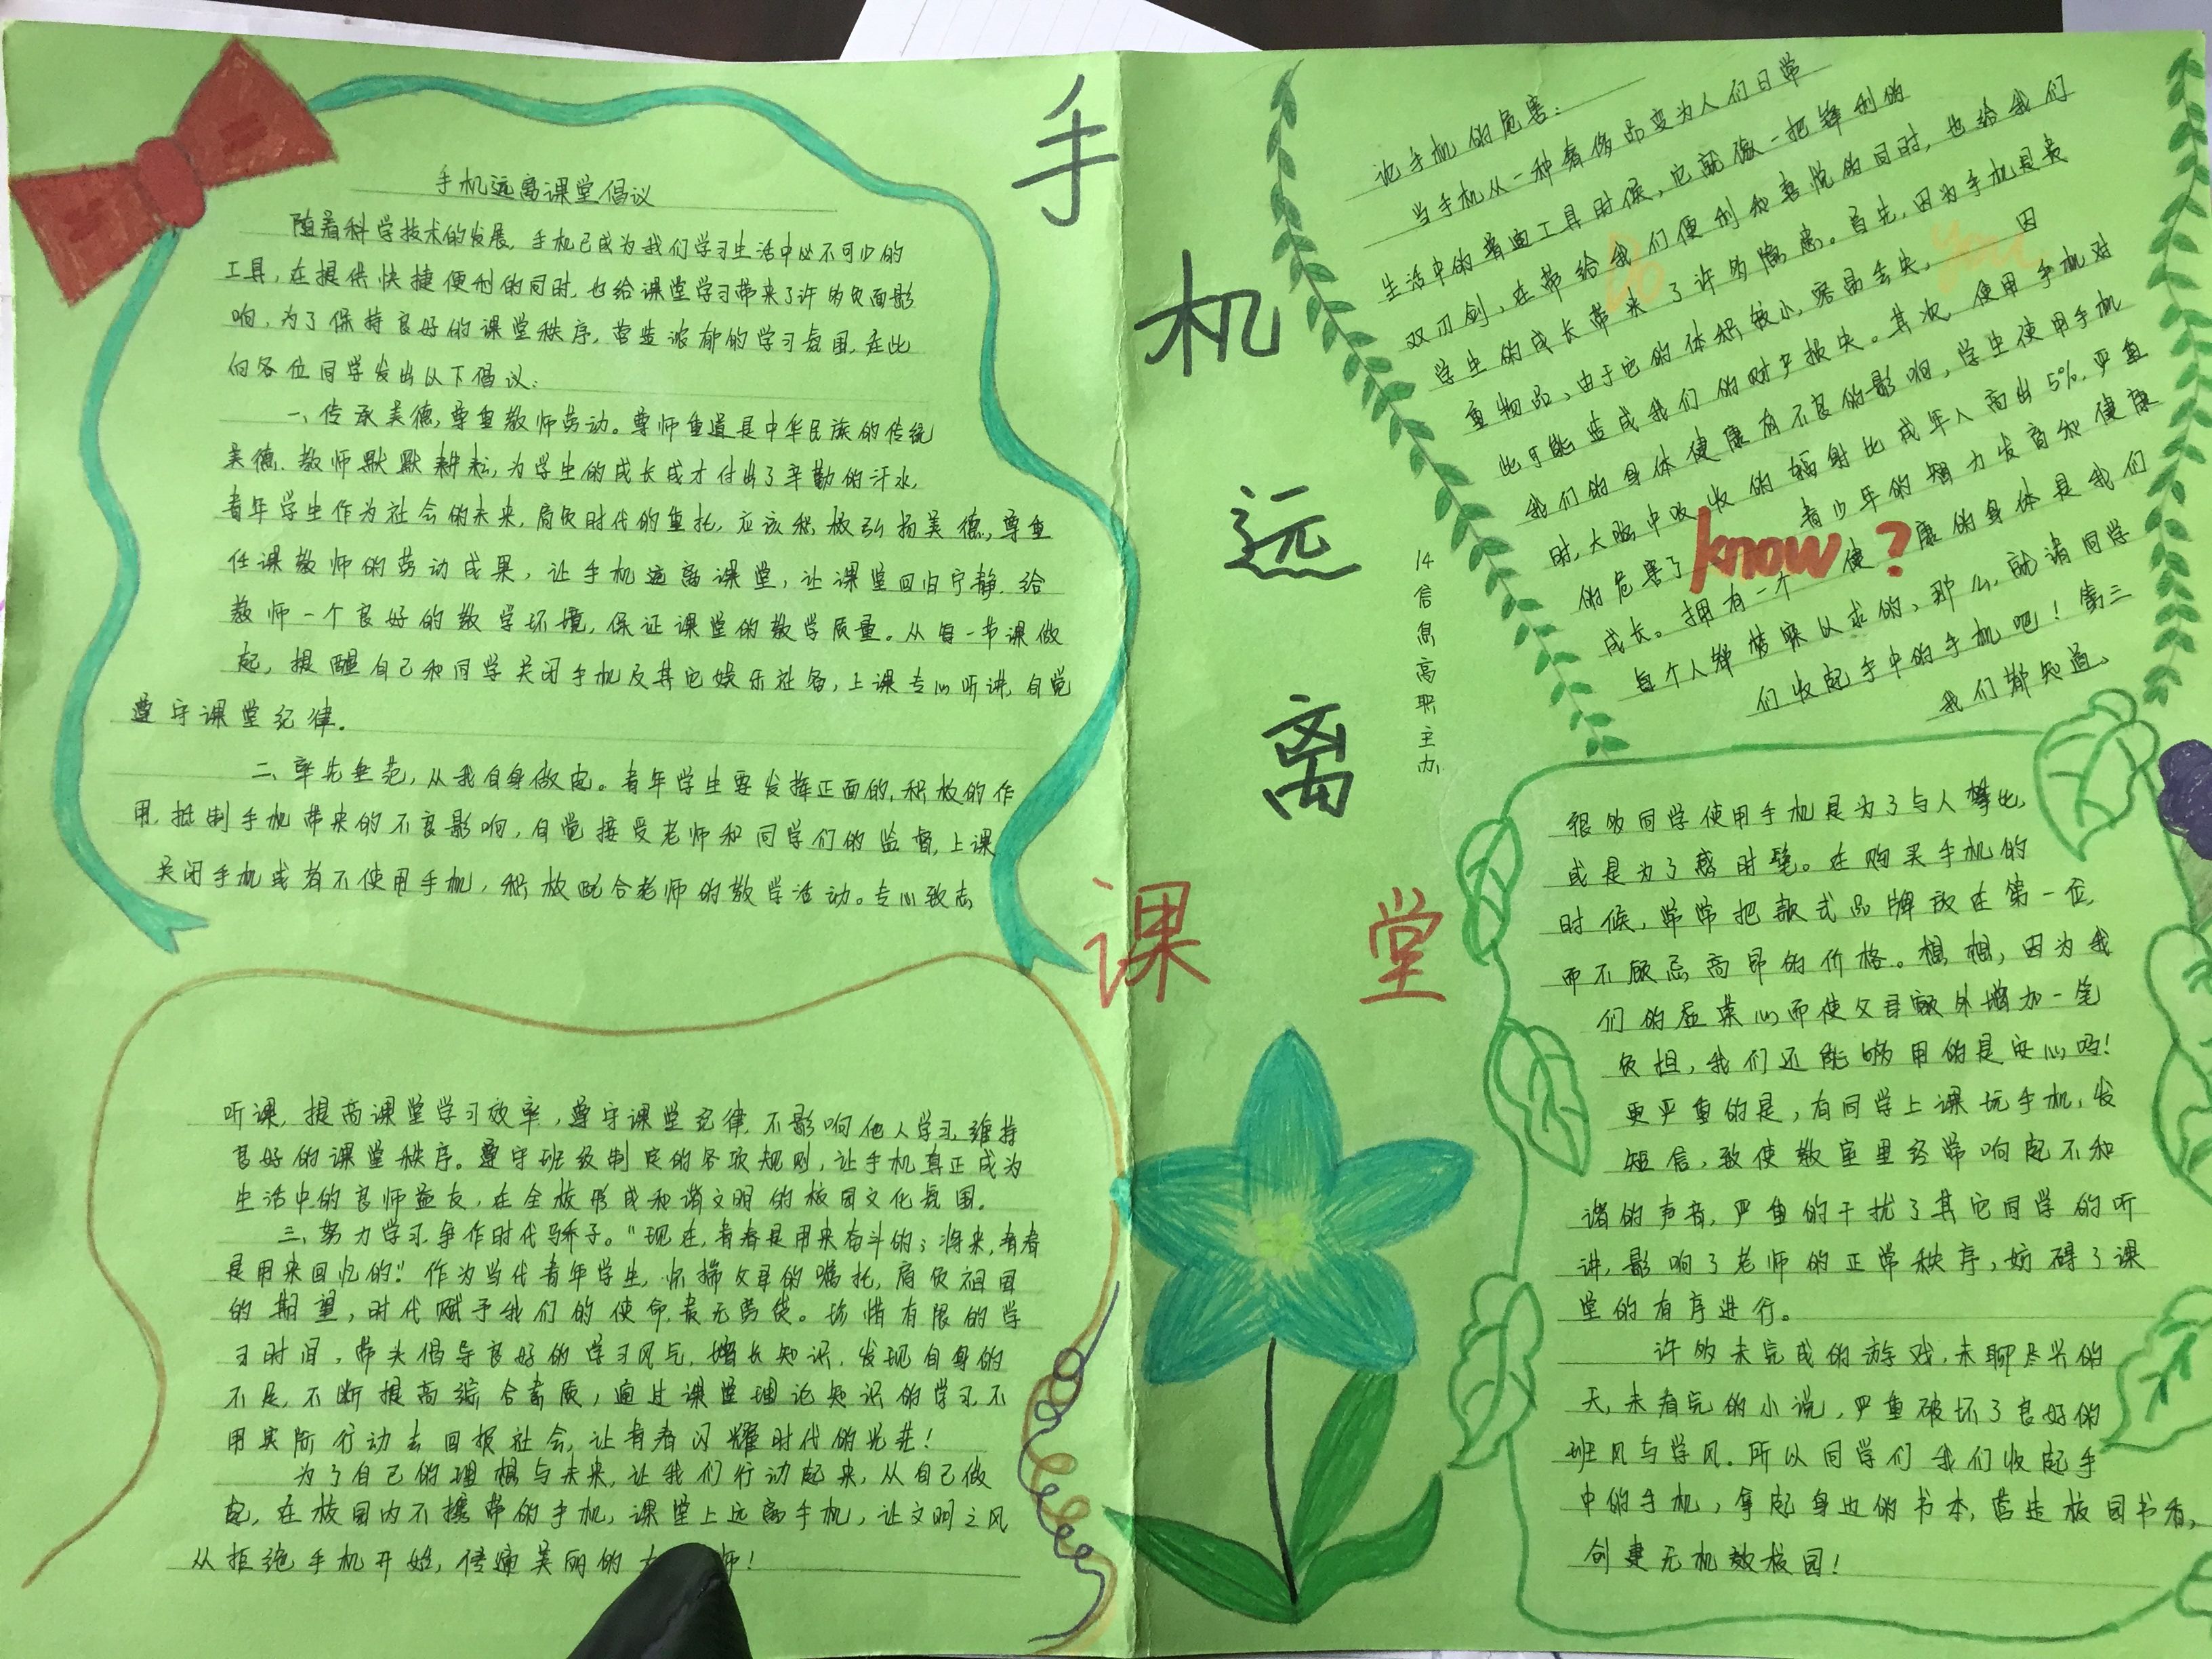 手机远离课堂
14信息高职主办
手机远离课堂倡议
随着科学技术的发展,手机已成为我们学习生活中必不可少的
工具,在提供快捷便利的同时,也给课堂学习带来了许多负面影
响,为了保持良好的课堂秩序,营造浓郁的学习氛围,在此
向各位同学发出以下倡议:
一、传承美德,尊重教师劳动。尊师重道是中华民族的传统
美德,教师默默耕耘,为学生的成长成才付出了辛勤的汗水,
青年学生作为社会的未来,肩负时代的重托,应该积极弘扬美德,尊重
任课教师的劳动成果,让手机远离课堂,让课堂回归宁静,给
教师一个良好的教学环境,保证课堂的教学质量。从每一节课做
起,提醒自己和同学关闭手机及其它娱乐设备,上课专心听讲,自觉
遵守课堂纪律。
二、率先垂范,从我自身做起。青年学生要发挥正面的,积极的作
用,抵制手机带来的不良影响,自觉接受老师和同学们的监督,上课
关闭手机或者不使用手机,积极配合老师的教学活动。专心致志
听课,提高课堂学习效率,遵守课堂纪律,不影响他人学习,维持
良好的课堂秩序。遵守班级制定的各项规则,让手机真正成为
生活中的良师益友,在全校形成和谐文明的校园文化氛围。
三、努力学习,争作时代骄子。“现在,青春是用来奋斗的;将来,青春
是用来回忆的!”作为当代青年学生,怀揣父母的嘱托,肩负祖国
的期望,时代赋予我们的使命,责无旁贷。珍惜有限的学
习时间,带头倡导良好的学习风气,增长知识,发现自身的
不足,不断提高综合素质,通过课堂理论知识的学习,不
用实际行动去回报社会,让青春闪耀时代的光芒!
为了自己的理想与未来,让我们行动起来,从自己做
起,在校园内不携带的手机,课堂上远离手机,让文明之风
从拒绝手机开始,传递美丽的
师!
论手机的危害:
当手机从一种奢侈品变为人们日常
生活中的普通工具时候,它就像一把锋利的
双刃剑,在带给我们便利和喜悦的同时,也给我们
学生的成长带来了许多隐患。首先,因为手机是贵
重物品,由于它的体积较小,容易丢失, 因
此可能造成我们的财产损失。其次,使用手机对
我们的身体健康有不良的影响,学生使用手机
时,大脑中吸收的辐射比成年人高出5%,严重
的危害了 青少年的智力发育和健康
成长。拥有一个 健 康的身体是我们
每个人都梦寐以求的,那么,就请同学
们收起手中的手机吧!第三
我们都知道、
Do
you
know?
很多同学使用手机是为了与人攀比
或是为了感时髦。在购买手机的
时候,常常把款式品牌放在第一位,
而不顾忌高昂的价格。想想,因为我
们的虚荣心而使父母额外增加一笔
负担,我们还能够用的是安心吗!
更严重的是,有同学上课玩手机,发
短信,致使教室里经常响起不和
谐的声音,严重的干扰了其它同学的听
讲,影响了老师的正常秩序,妨碍了课
堂的有序进行。
许多未完成的游戏,未聊尽兴的
天,未看完的小说,严重破坏了良好的
班风与学风。所以同学们我们收起手
中的手机,拿起身边的书本,营造校园书香,
创建无机教校园!